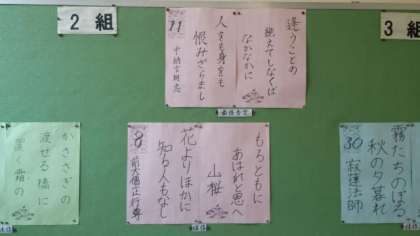 2組
3組
逢うことの
絶えてしなくば
なかなかに
人をも身をも
恨みざらまし
11
中納言朝忠
かささぎの
渡せる橋に
置く霜の
もろともに
あはれと思へ
山桜
花よりほかに
知る人もなし
8
前大僧正行尊
霧たちのぼる
秋の夕暮れ
30
寂蓮法師